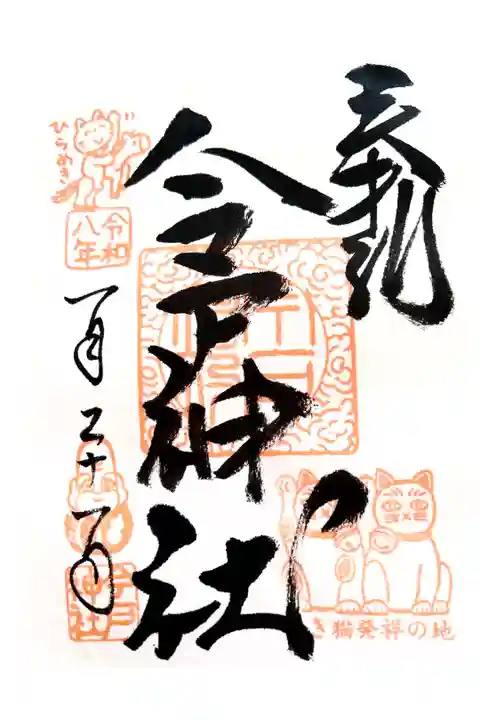 奉拝
今戸神社
ひらめき
令和
八年
一月二十一日
今戸
神社
き猫発祥の地